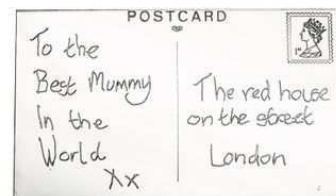 POSTCARD
1st
To the
Best Mummy
In the
World
Xx
The red house
on the street
London